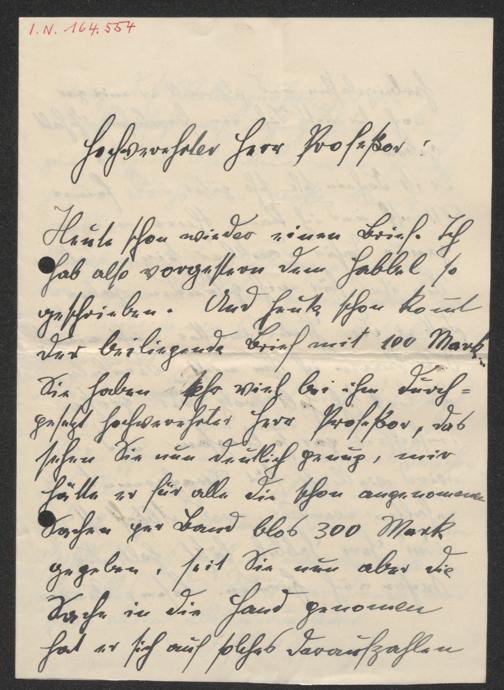 I.N. 164.554
Hochverehrter Herr Profeßor!
Heute schon wieder einen Brief. Ich
hab also vorgestern dem Habbel so
geschrieben. Und heute schon kom̄t
der beiliegende Brief mit 100 Mark.
Sie haben sehr viel bei ihm durch=
gesetzt hochverehrter Herr Profeßor, das
sehen Sie nun deutlich genug, mir
hätte er für alle die schon angenomenen
Sachen per Band blos 300 Mark
gegeben, seit Sie nun aber die
Sache in die Hand genomen
hat er sich auf solches daraufzahlen